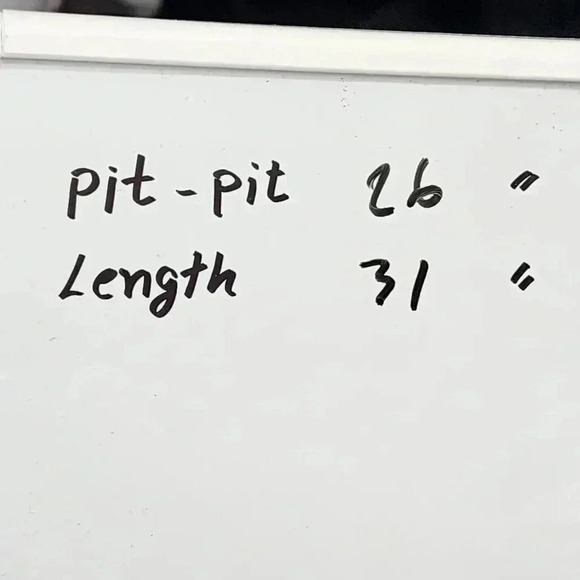 pit-pit 26 "
Length 31 "